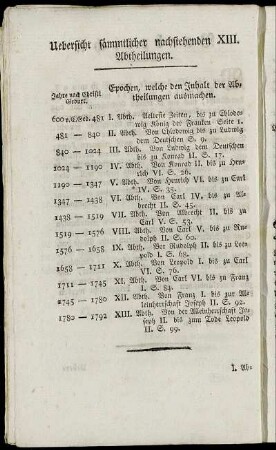 Uebersicht sämmtlicher nachstehenden XIII.
Abtheilungen.
Jahre nach Christi
Geburt.
Epochen, welche den Inhalt der Ab-
theilungen ausmachen.
600 v.C.Geb. 481 I. Abth. Aelteste Zeiten, bis zu Chlodo-
wig König der Franken Seite 1.
481 — 840 II. Abth. Von Chlodowig bis zu Ludwig
dem Deutschen S. 9.
840 — 1024 III. Abth. Von Ludwig dem Deutschen
bis zu Konrad II. S. 17.
1024 — 1190 IV. Abth. Von Konrad II. bis zu Hein-
rich VI. S. 26.
1190 — 1347 V. Abth. Von Heinrich VI. bis zu Carl
IV. S. 35.
1347 — 1438 VI. Abth. Von Carl IV. bis zu Al-
brecht II. S. 45.
1438 — 1519 VII. Abth. Von Albrecht II. bis zu
Carl V. S. 53.
1519 — 1576 VIII. Abth. Von Carl V. bis zu Ru-
dolph II. S. 60.
1576 — 1658 IX. Abth. Vor Rudolph II. bis zu Leo-
pold I. S. 68.
1658 — 1711 X. Abth. Von Leopold I. bis zu Carl
VI. S. 76.
1711 — 1745 XI. Abth. Von Carl VI. bis zu Franz
I. S. 84.
1745 — 1780 XII. Abth. Von Franz I. bis zur Al-
leinherrschaft Joseph II. S. 92.
1780 — 1792 XIII. Abth. Von der Alleinherrschaft Jo-
seph II. bis zum Tode Leopold
II. S. 99.
I. Ab-